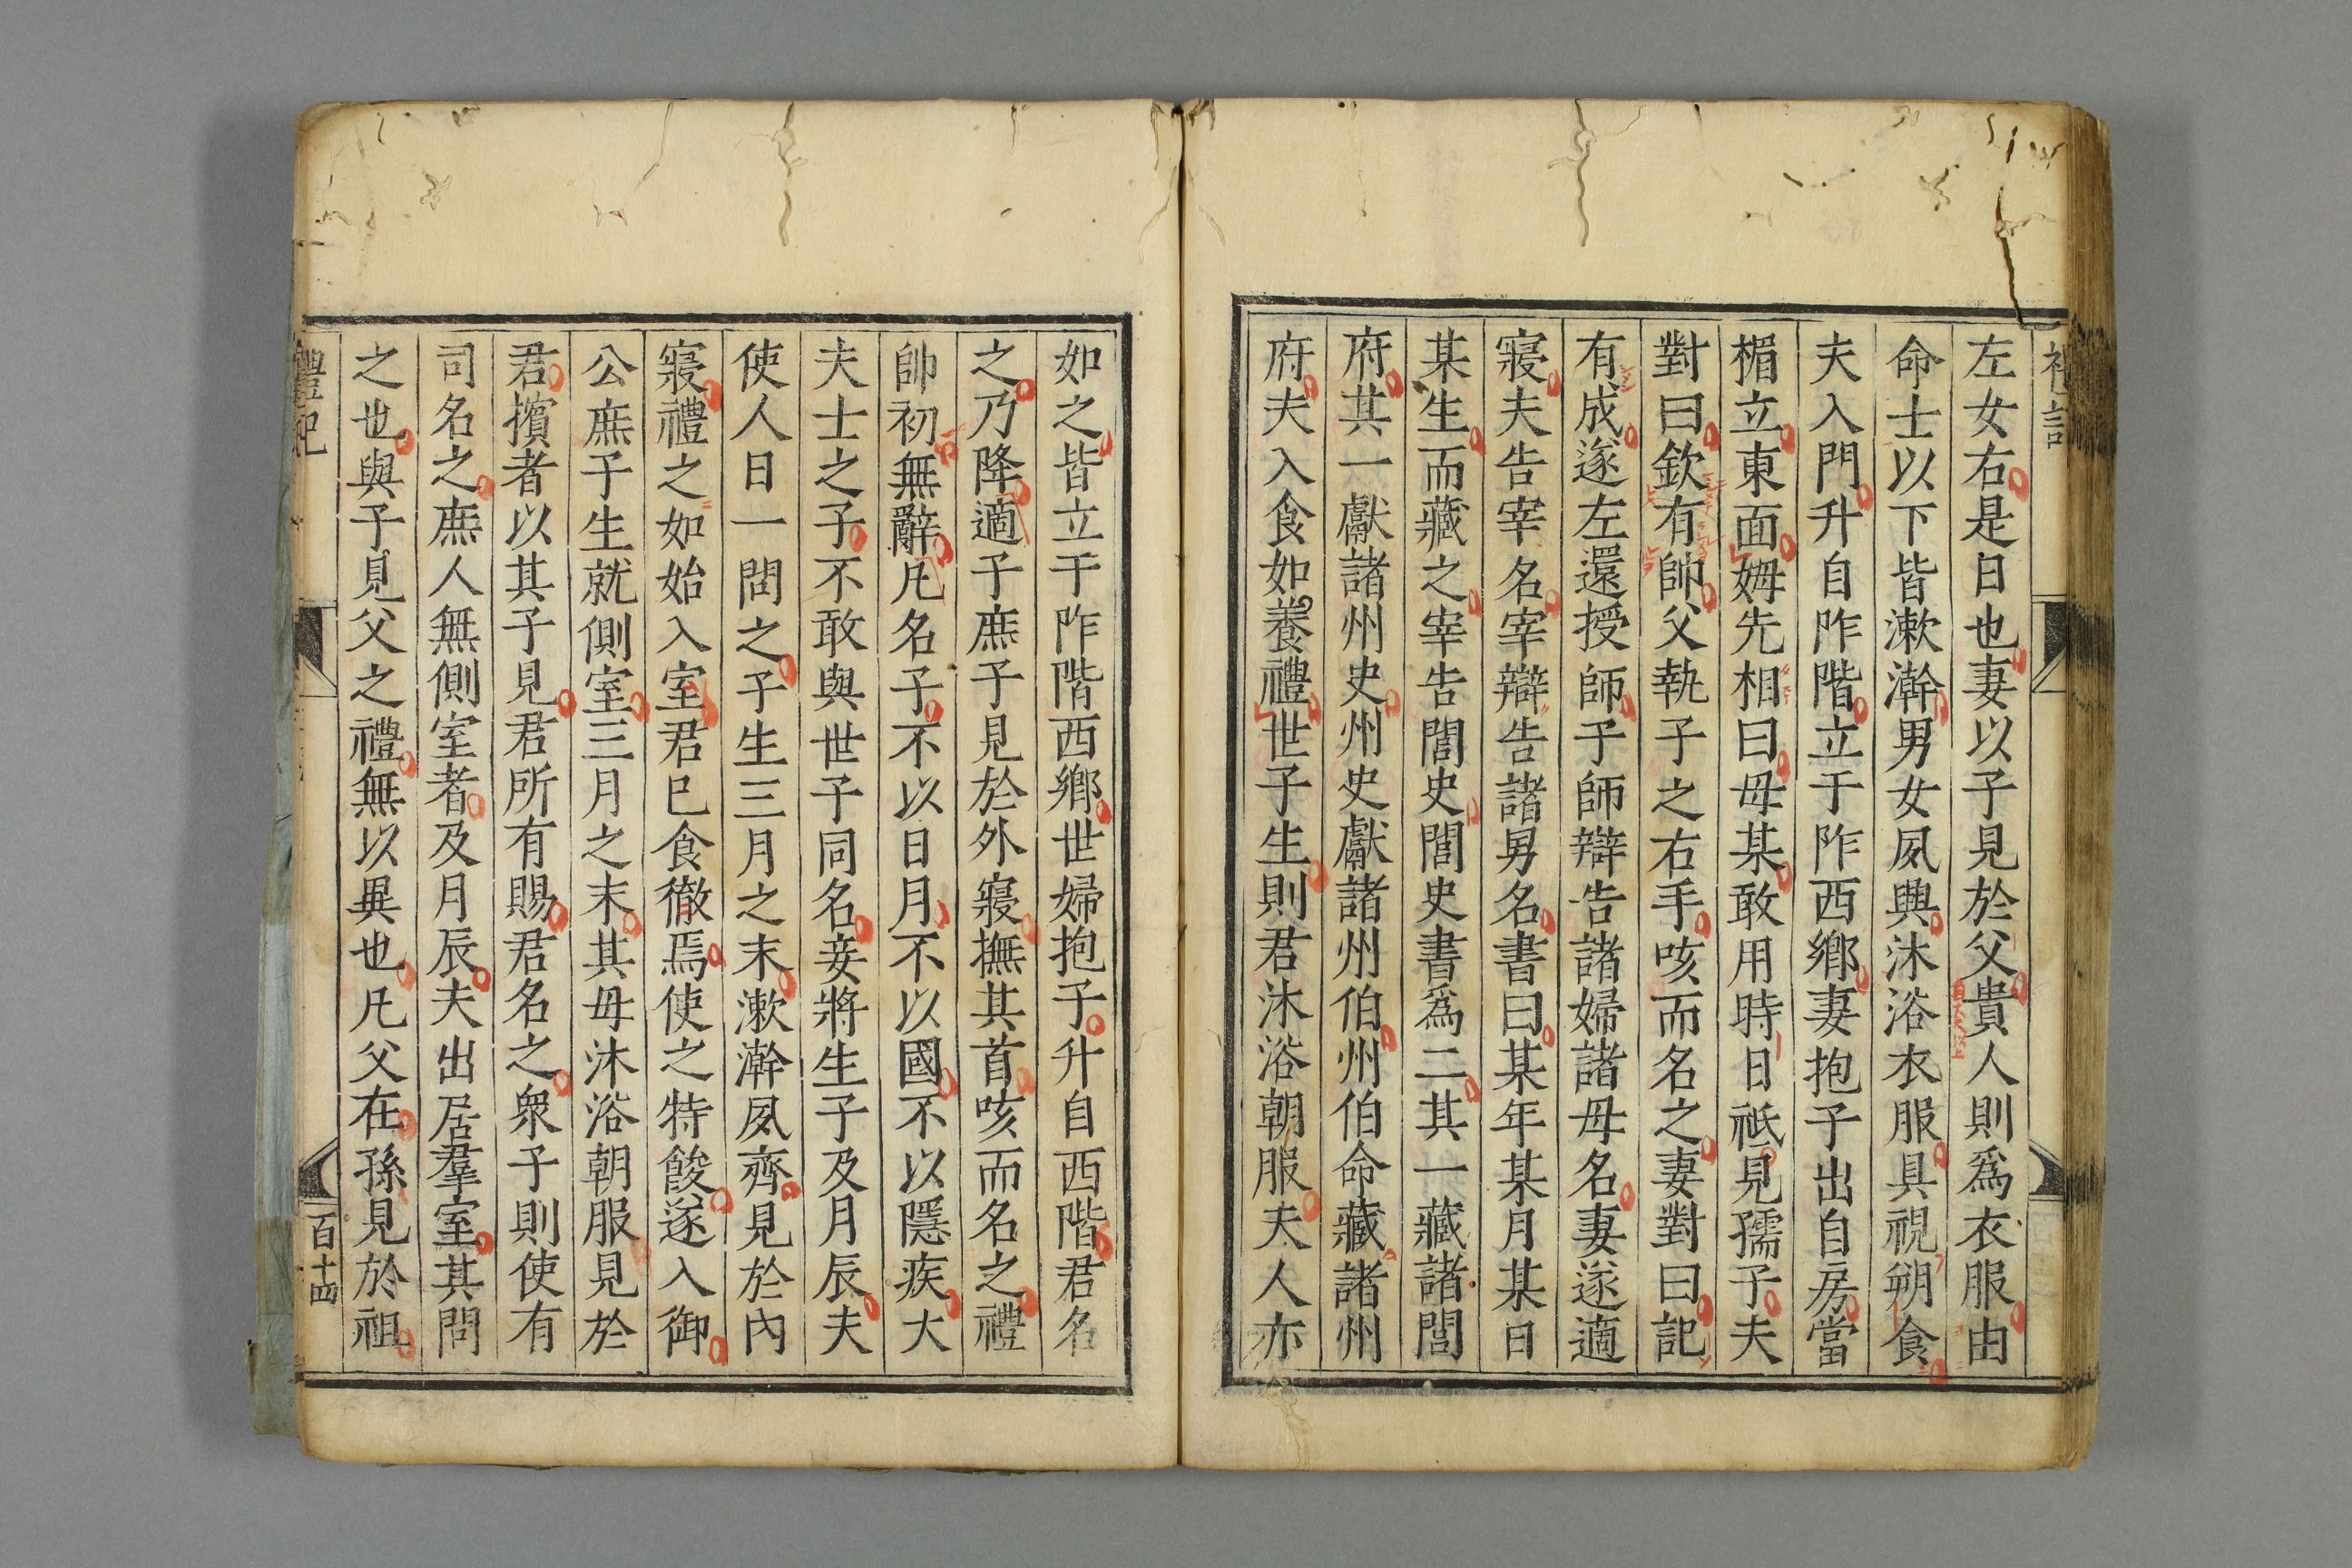 禮記
左女右是日也妻以子見於父貴人則爲衣服由
命士以下皆漱澣男女夙興沐浴衣服具視朔食
夫入門升自阼階立于阼西鄉妻抱子出自房當
楣立東面姆先相曰母某敢用時日祗見孺子夫
對曰欽有帥父執子之右手咳而名之妻對曰記
有成遂左還授師子師辯告諸婦諸母名妻遂適
寢夫告宰名宰辯告諸男名書曰某年某月某日
某生而藏之宰告閭史閭史書爲二其一藏諸閭
府其一獻諸州史州史獻諸州伯州伯命藏諸州
府夫入食如養禮世子生則君沐浴朝服夫人亦
如之皆立于阼階西鄉世婦抱子升自西階君名
之乃降適子庶子見於外寢撫其首咳而名之禮
帥初無辭凡名子不以日月不以國不以隱疾大
夫士之子不敢與世子同名妾將生子及月辰夫
使人日一問之子生三月之末漱澣夙齊見於內
寢禮之如始入室君已食徹焉使之特餕遂入御
公庶子生就側室三月之末其母沐浴朝服見於
君擯者以其子見君所有賜君名之衆子則使有
司名之庶人無側室者及月辰夫出居羣室其問
之也與子見父之禮無以異也凡父在孫見於祖
禮記
百十四